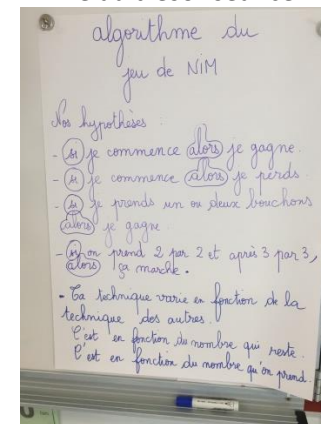 algorithme du
jeu de NIM
Nos hypothèses :
- si je commence alors je gagne.
- si je commence alors je perds.
- si je prends un ou deux bouchons
alors je gagne.
- si on prend 2 par 2 et après 3 par 3,
alors ça marche.
- Ta technique varie en fonction de la
technique des autres.
C'est en fonction du nombre qui reste.
C'est en fonction du nombre qu'on prend.